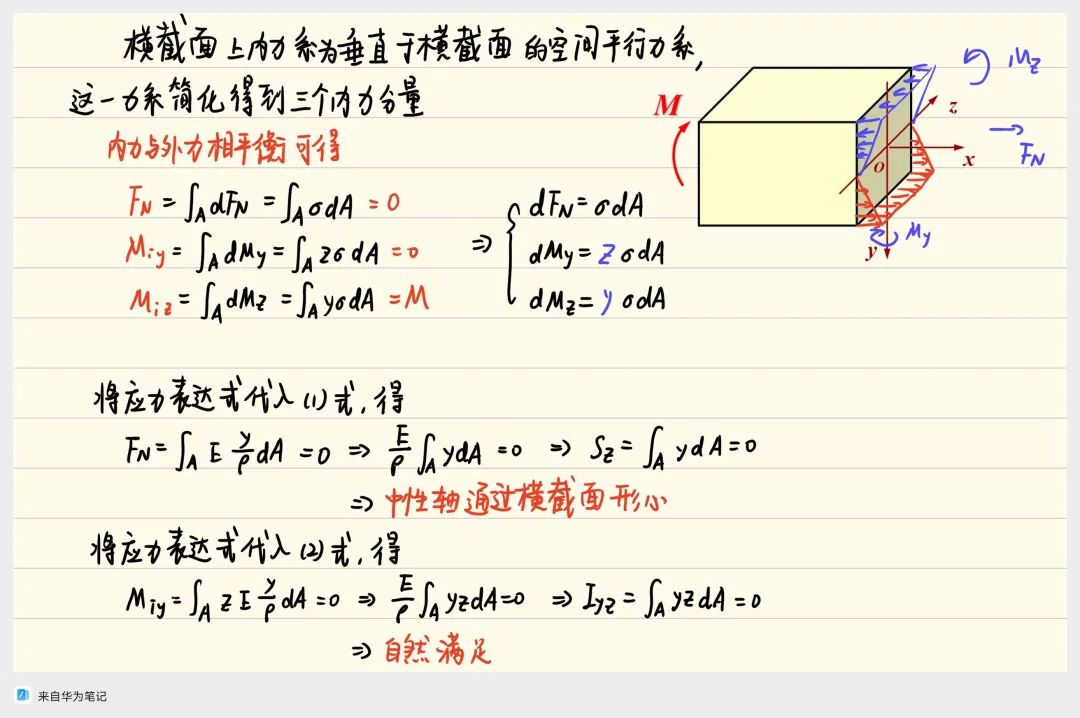 横截面上内力系为垂直于横截面的空间平行力系,
这一力系简化得到三个内力分量
内力与外力相平衡可得
F_N = ∫_A dF_N = ∫_A σdA = 0
M_iy = ∫_A dM_y = ∫_A zσdA = 0
M_iz = ∫_A dM_z = ∫_A yσdA = M
⇒ { dF_N = σdA
dM_y = zσdA
dM_z = yσdA
M
M_z
z
F_N
x
o
M_y
y
将应力表达式代入(1)式,得
F_N = ∫_A E y/ρ dA = 0 ⇒ E/ρ ∫_A ydA = 0 ⇒ S_z = ∫_A ydA = 0
⇒ 中性轴通过横截面形心
将应力表达式代入(2)式,得
M_iy = ∫_A z E y/ρ dA = 0 ⇒ E/ρ ∫_A yzdA = 0 ⇒ I_yz = ∫_A yzdA = 0
⇒ 自然满足
来自华为笔记